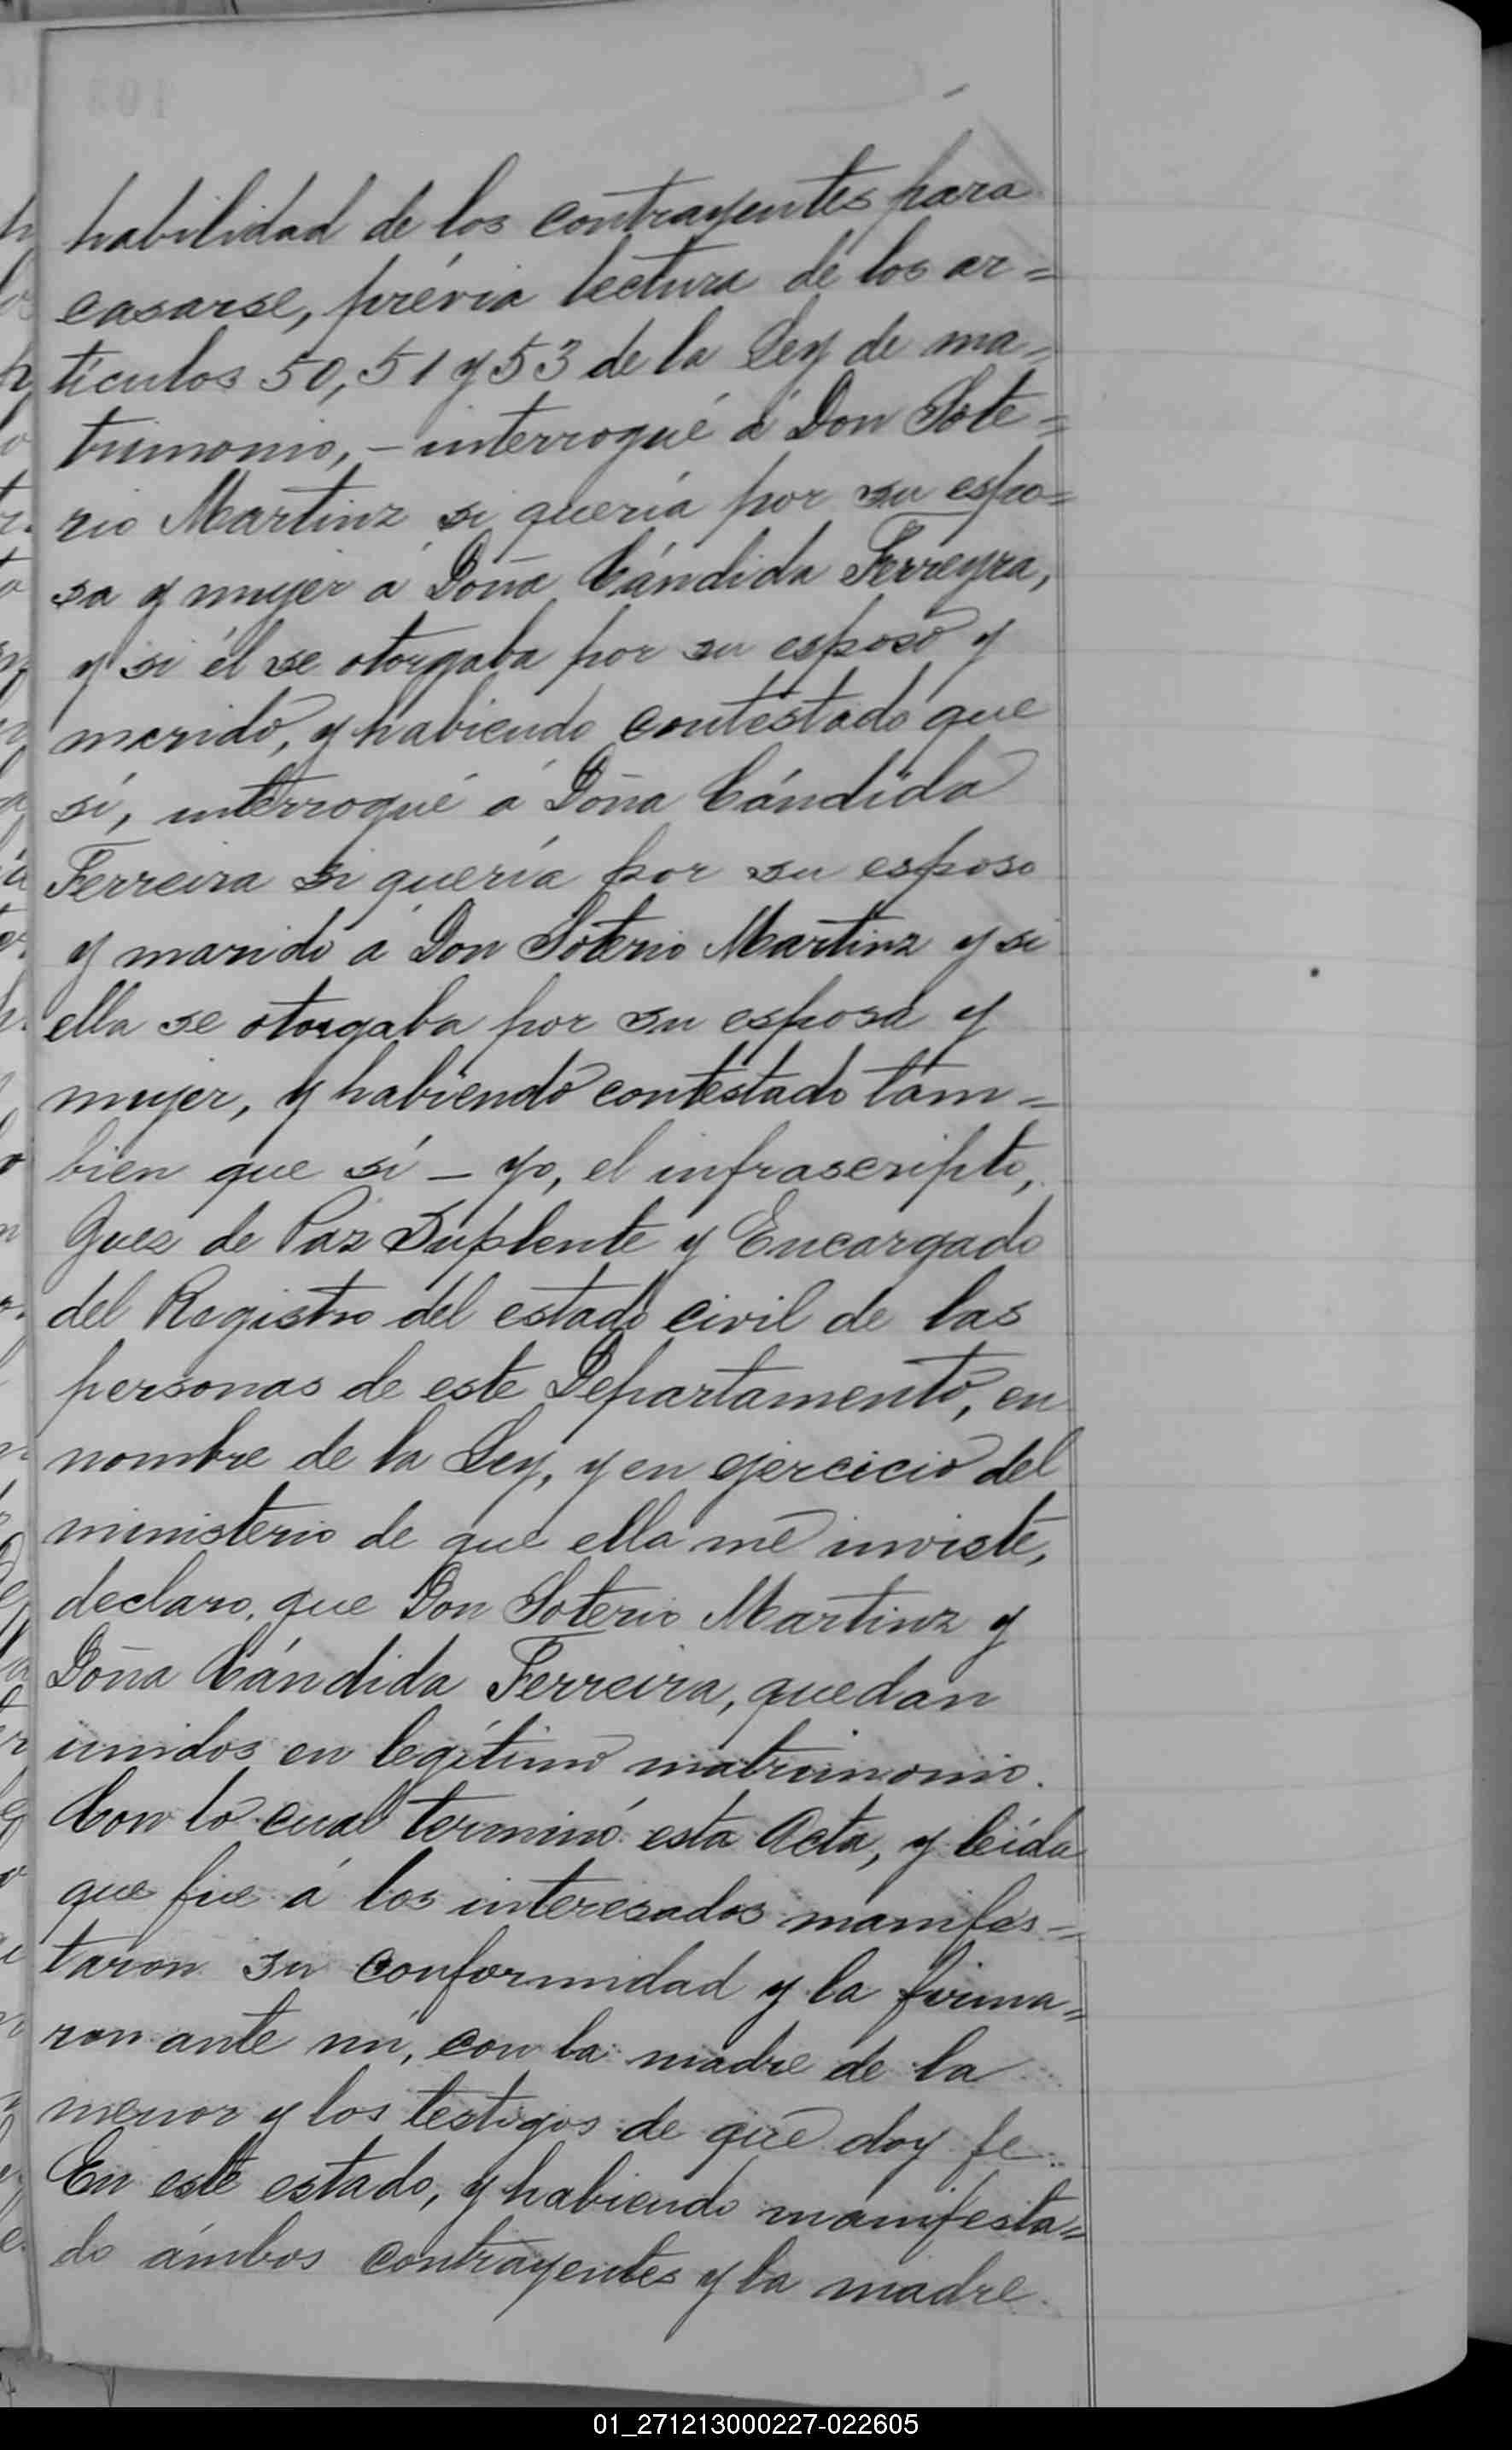 habilidad de los contrayentes para
casarse, prévia lectura de los ar=
tículos 50, 51 y 53 de la Ley de ma=
trimonio, – interrogué á Don Sote=
rio Martinz si quería por su espo=
sa y mujer á Doña Cándida Ferreyra,
y si él se otorgaba por su esposo y
marido, y habiendo contestado que
sí, interrogué á Doña Cándida
Ferreira si quería por su esposo
y marido á Don Soterio Martinz y si
ella se otorgaba por su esposa y
mujer, y habiendo contestado tam=
bien que sí – yo, el infrascripto,
Juez de Paz Suplente y Encargado
del Registro del estado civil de las
personas de este Departamento, en
nombre de la Ley, y en ejercicio del
ministerio de que ella me inviste,
declaro, que Don Soterio Martinz y
Doña Cándida Ferreira, quedan
unidos en legítimo matrimonio.
Con lo cual terminó esta Acta, y leída
que fue á los interesados manifes=
taron su conformidad y la firma=
ron ante mí, con la madre de la
menor y los testigos de que doy fe.
En este estado, y habiendo manifesta=
do ámbos contrayentes y la madre
01_271213000227-022605